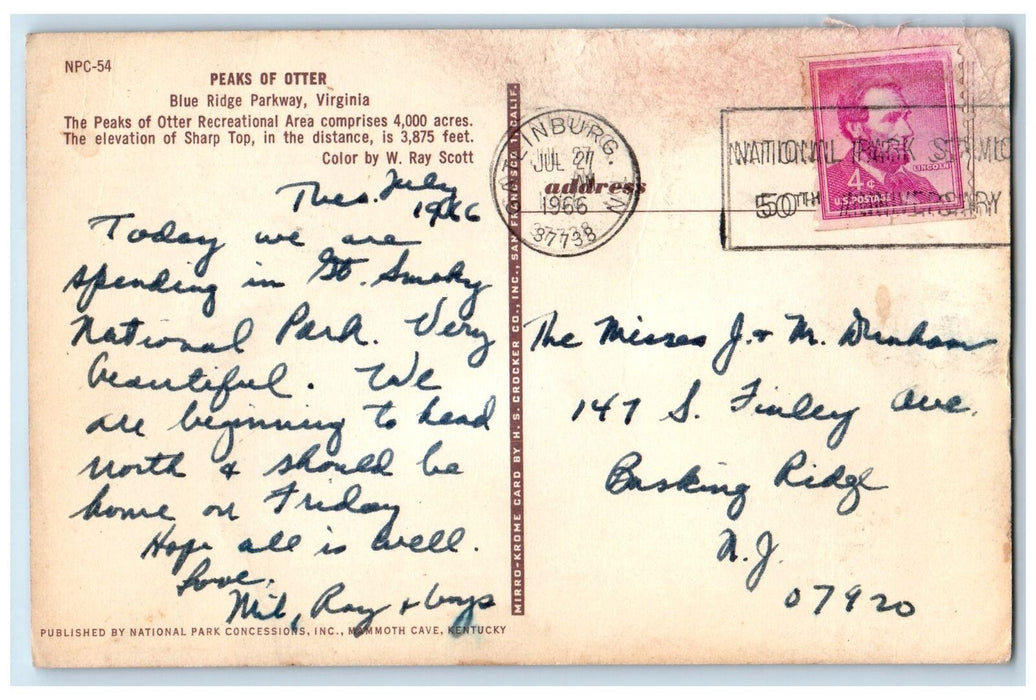 NPC-54
PEAKS OF OTTER
Blue Ridge Parkway, Virginia
The Peaks of Otter Recreational Area comprises 4,000 acres.
The elevation of Sharp Top, in the distance, is 3,875 feet.
Color by W. Ray Scott
Thes. July
1966
Today we are
spending in Gt. Smoky
National Park. Very
beautiful. We
are beginning to head
north & should be
home on Friday
Hope all is well.
Love,
Mil, Ray & boys
PUBLISHED BY NATIONAL PARK CONCESSIONS, INC., MAMMOTH CAVE, KENTUCKY
MIRRO-KROME CARD BY H. S. CROCKER CO., INC., SAN FRANCISCO 1, CALIF.
GATLINBURG, TN
JUL 27
1966
37738
address
NATIONAL PARK SERVIC
50TH ANNIVERSARY
LINCOLN
4¢
U.S. POSTAGE
The Misses J. & M. Dunham
147 S. Finley Ave.
Basking Ridge
N. J.
07920